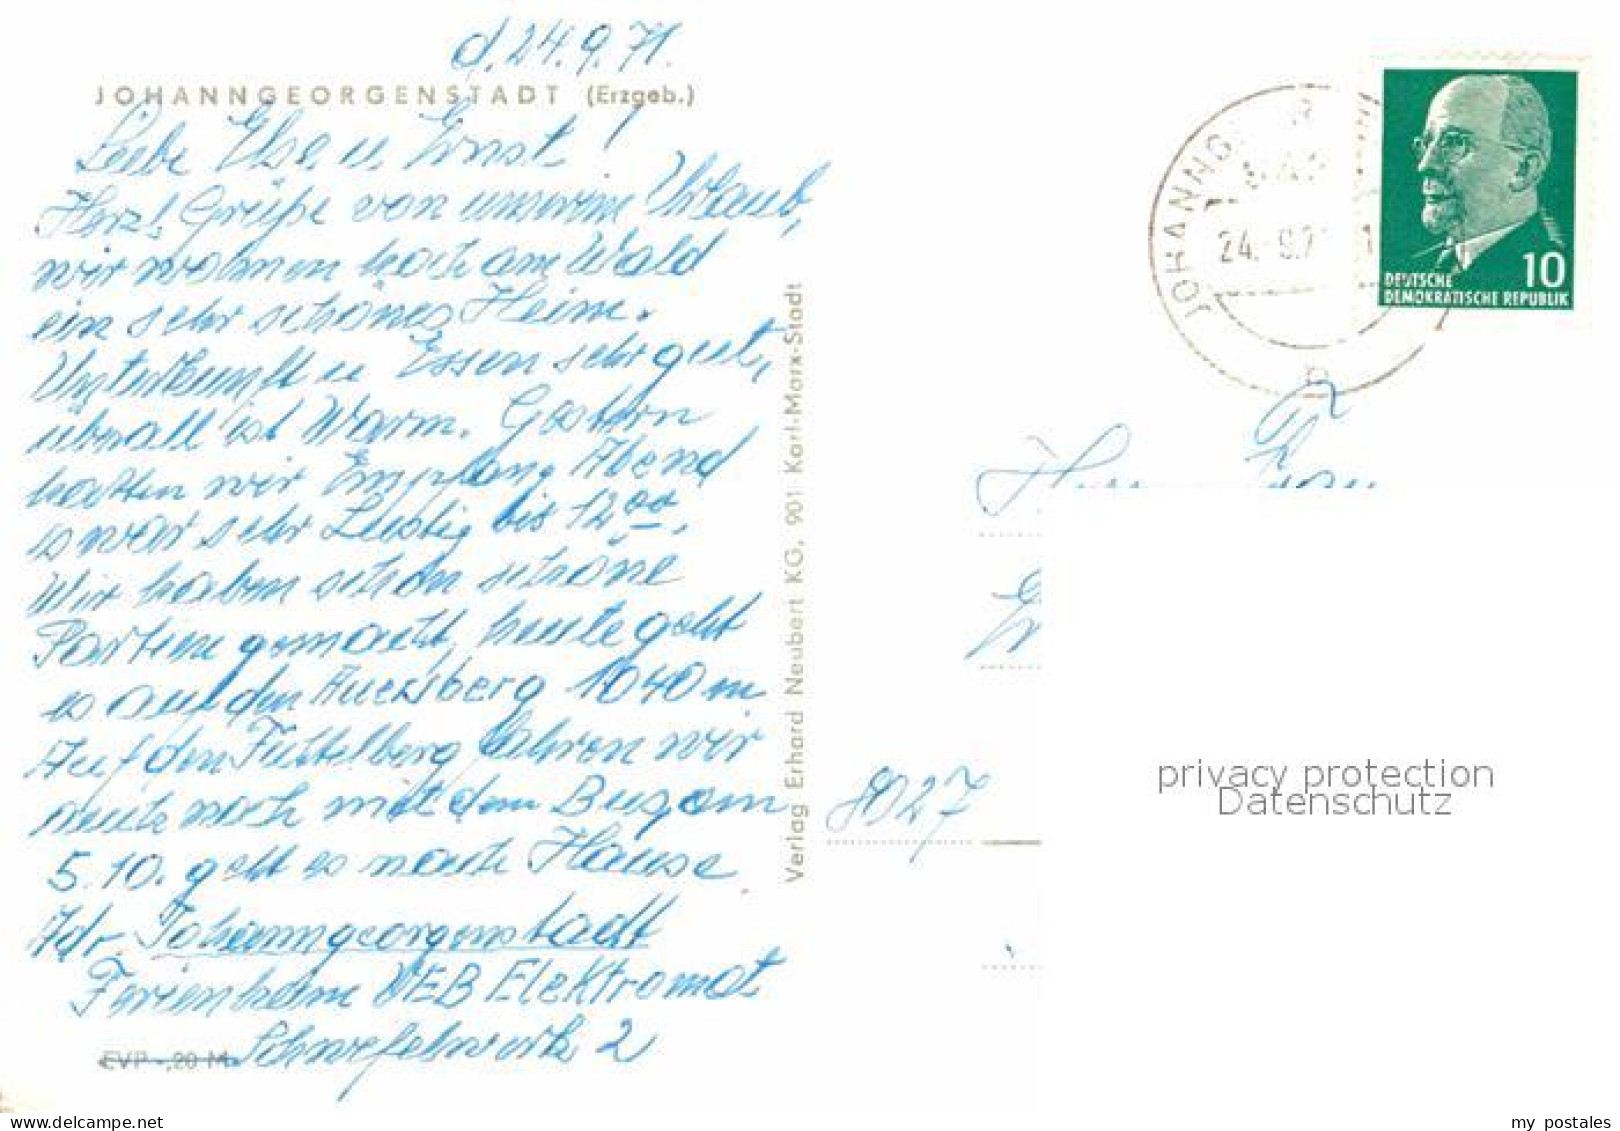 d. 24.9.71.
JOHANNGEORGENSTADT (Erzgeb.)
Liebe Elsa u Ernst!
Herz! Grüße von unserem Urlaub,
wir wohnen hoch am Wald
ein sehr schönes Heim.
Unterkunft u Essen sehr gut,
überall ist Warm. Gestern
hatten wir Empfang Abend
es war sehr Lustig bis 12 00.
Wir haben schon schöne
Partien gemacht, heute geht
es auf den Auersberg 1040 m
Auf den Fichtelberg fahren wir
auch noch mit dem Bus am
5.10. geht es nach Hause.
Adr. Johanngeorgenstadt
Ferienheim VEB Elektromat
Schwefelwerk 2
EVP -,20 M
Verlag Erhard Neubert KG, 901 Karl-Marx-Stadt
JOHANNG
24.-9.7
DEUTSCHE
DEMOKRATISCHE REPUBLIK
10
Fam
8027
privacy protection
Datenschutz
my postales